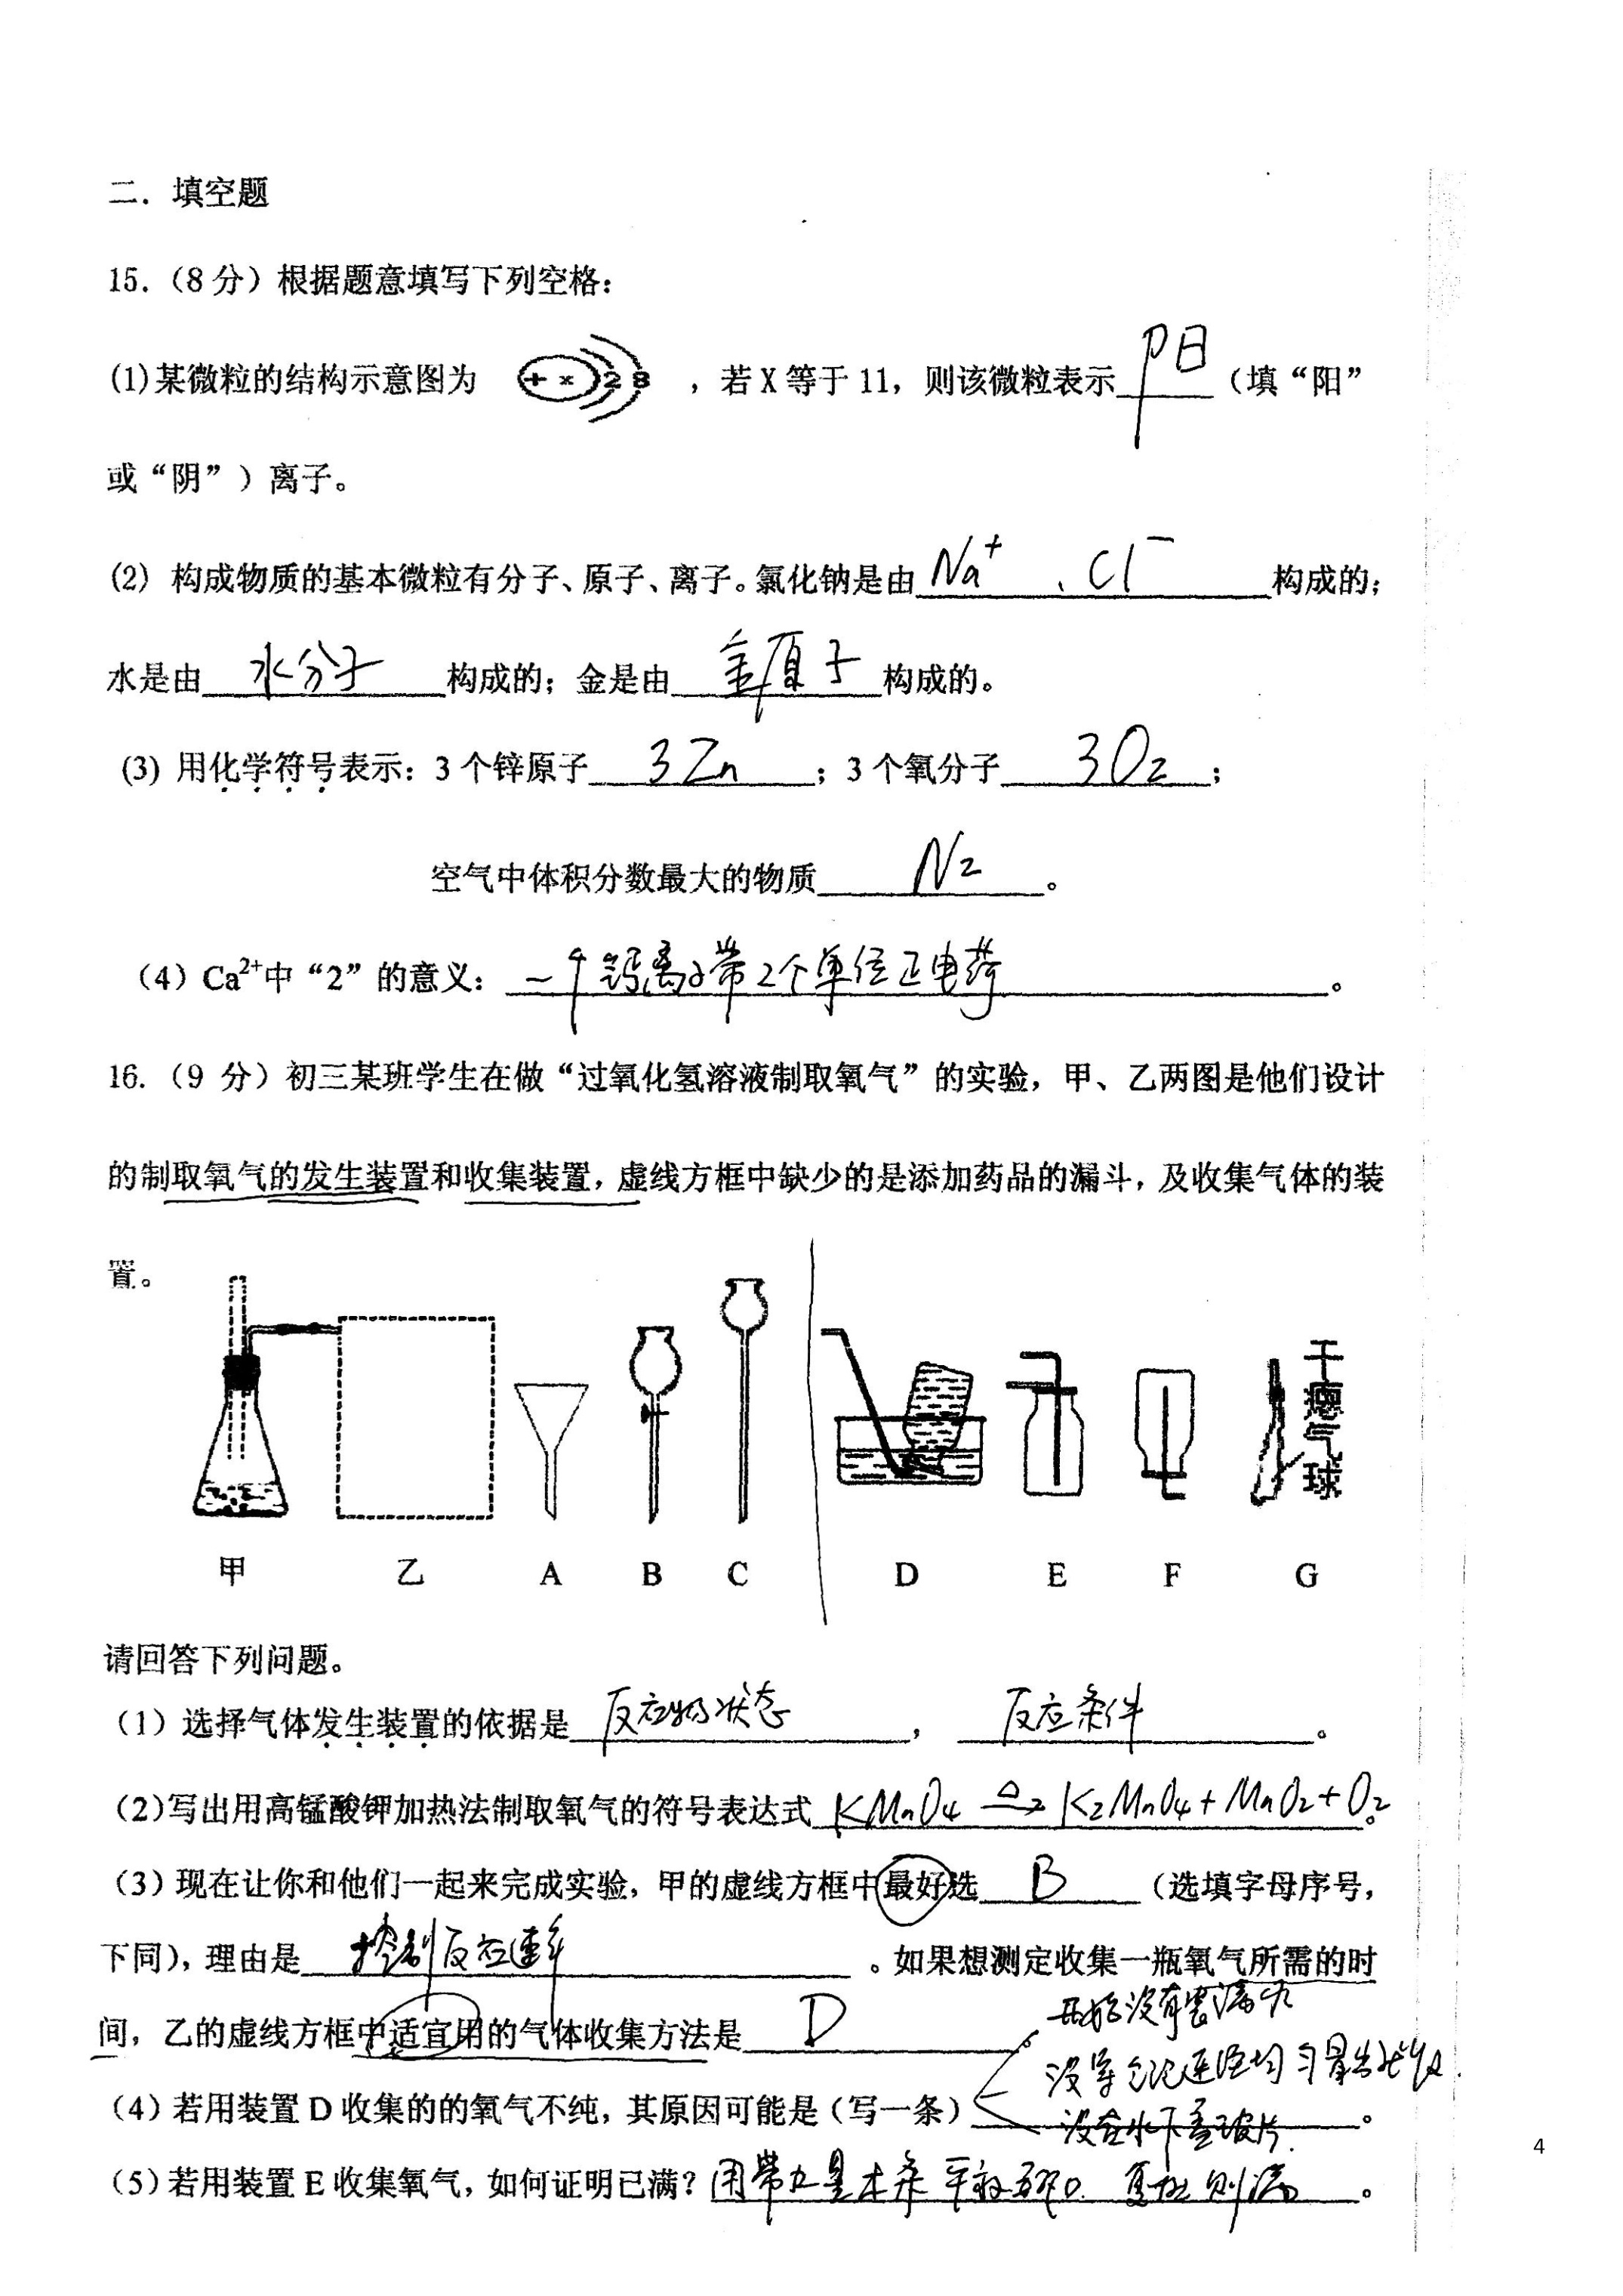 二．填空题
15.（8分）根据题意填写下列空格：
(1)某微粒的结构示意图为 + x 2 8 ，若X等于11，则该微粒表示 阳 （填“阳”
或“阴”）离子。
(2) 构成物质的基本微粒有分子、原子、离子。氯化钠是由 Na⁺、Cl⁻ 构成的；
水是由 水分子 构成的；金是由 金原子 构成的。
(3) 用化学符号表示：3个锌原子 3Zn ；3个氧分子 3O₂ ；
空气中体积分数最大的物质 N₂ 。
（4）Ca²⁺中“2”的意义： 一个钙离子带2个单位正电荷 。
16.（9 分）初三某班学生在做“过氧化氢溶液制取氧气”的实验，甲、乙两图是他们设计
的制取氧气的发生装置和收集装置，虚线方框中缺少的是添加药品的漏斗，及收集气体的装
置。
干瘪气球
甲 乙 A B C D E F G
请回答下列问题。
（1）选择气体发生装置的依据是 反应物状态 ， 反应条件 。
（2）写出用高锰酸钾加热法制取氧气的符号表达式 KMnO₄ △→ K₂MnO₄+MnO₂+O₂ 。
（3）现在让你和他们一起来完成实验，甲的虚线方框中最好选 B （选填字母序号，
下同），理由是 控制反应速率 。如果想测定收集一瓶氧气所需的时
间，乙的虚线方框中适宜用的气体收集方法是 D 。
开始没有装满水
没等气泡连续均匀冒出就收
（4）若用装置D收集的的氧气不纯，其原因可能是（写一条） 。
没在水下盖玻片.
（5）若用装置E收集氧气，如何证明已满？ 用带火星木条平放瓶口 复燃 则满 。
4